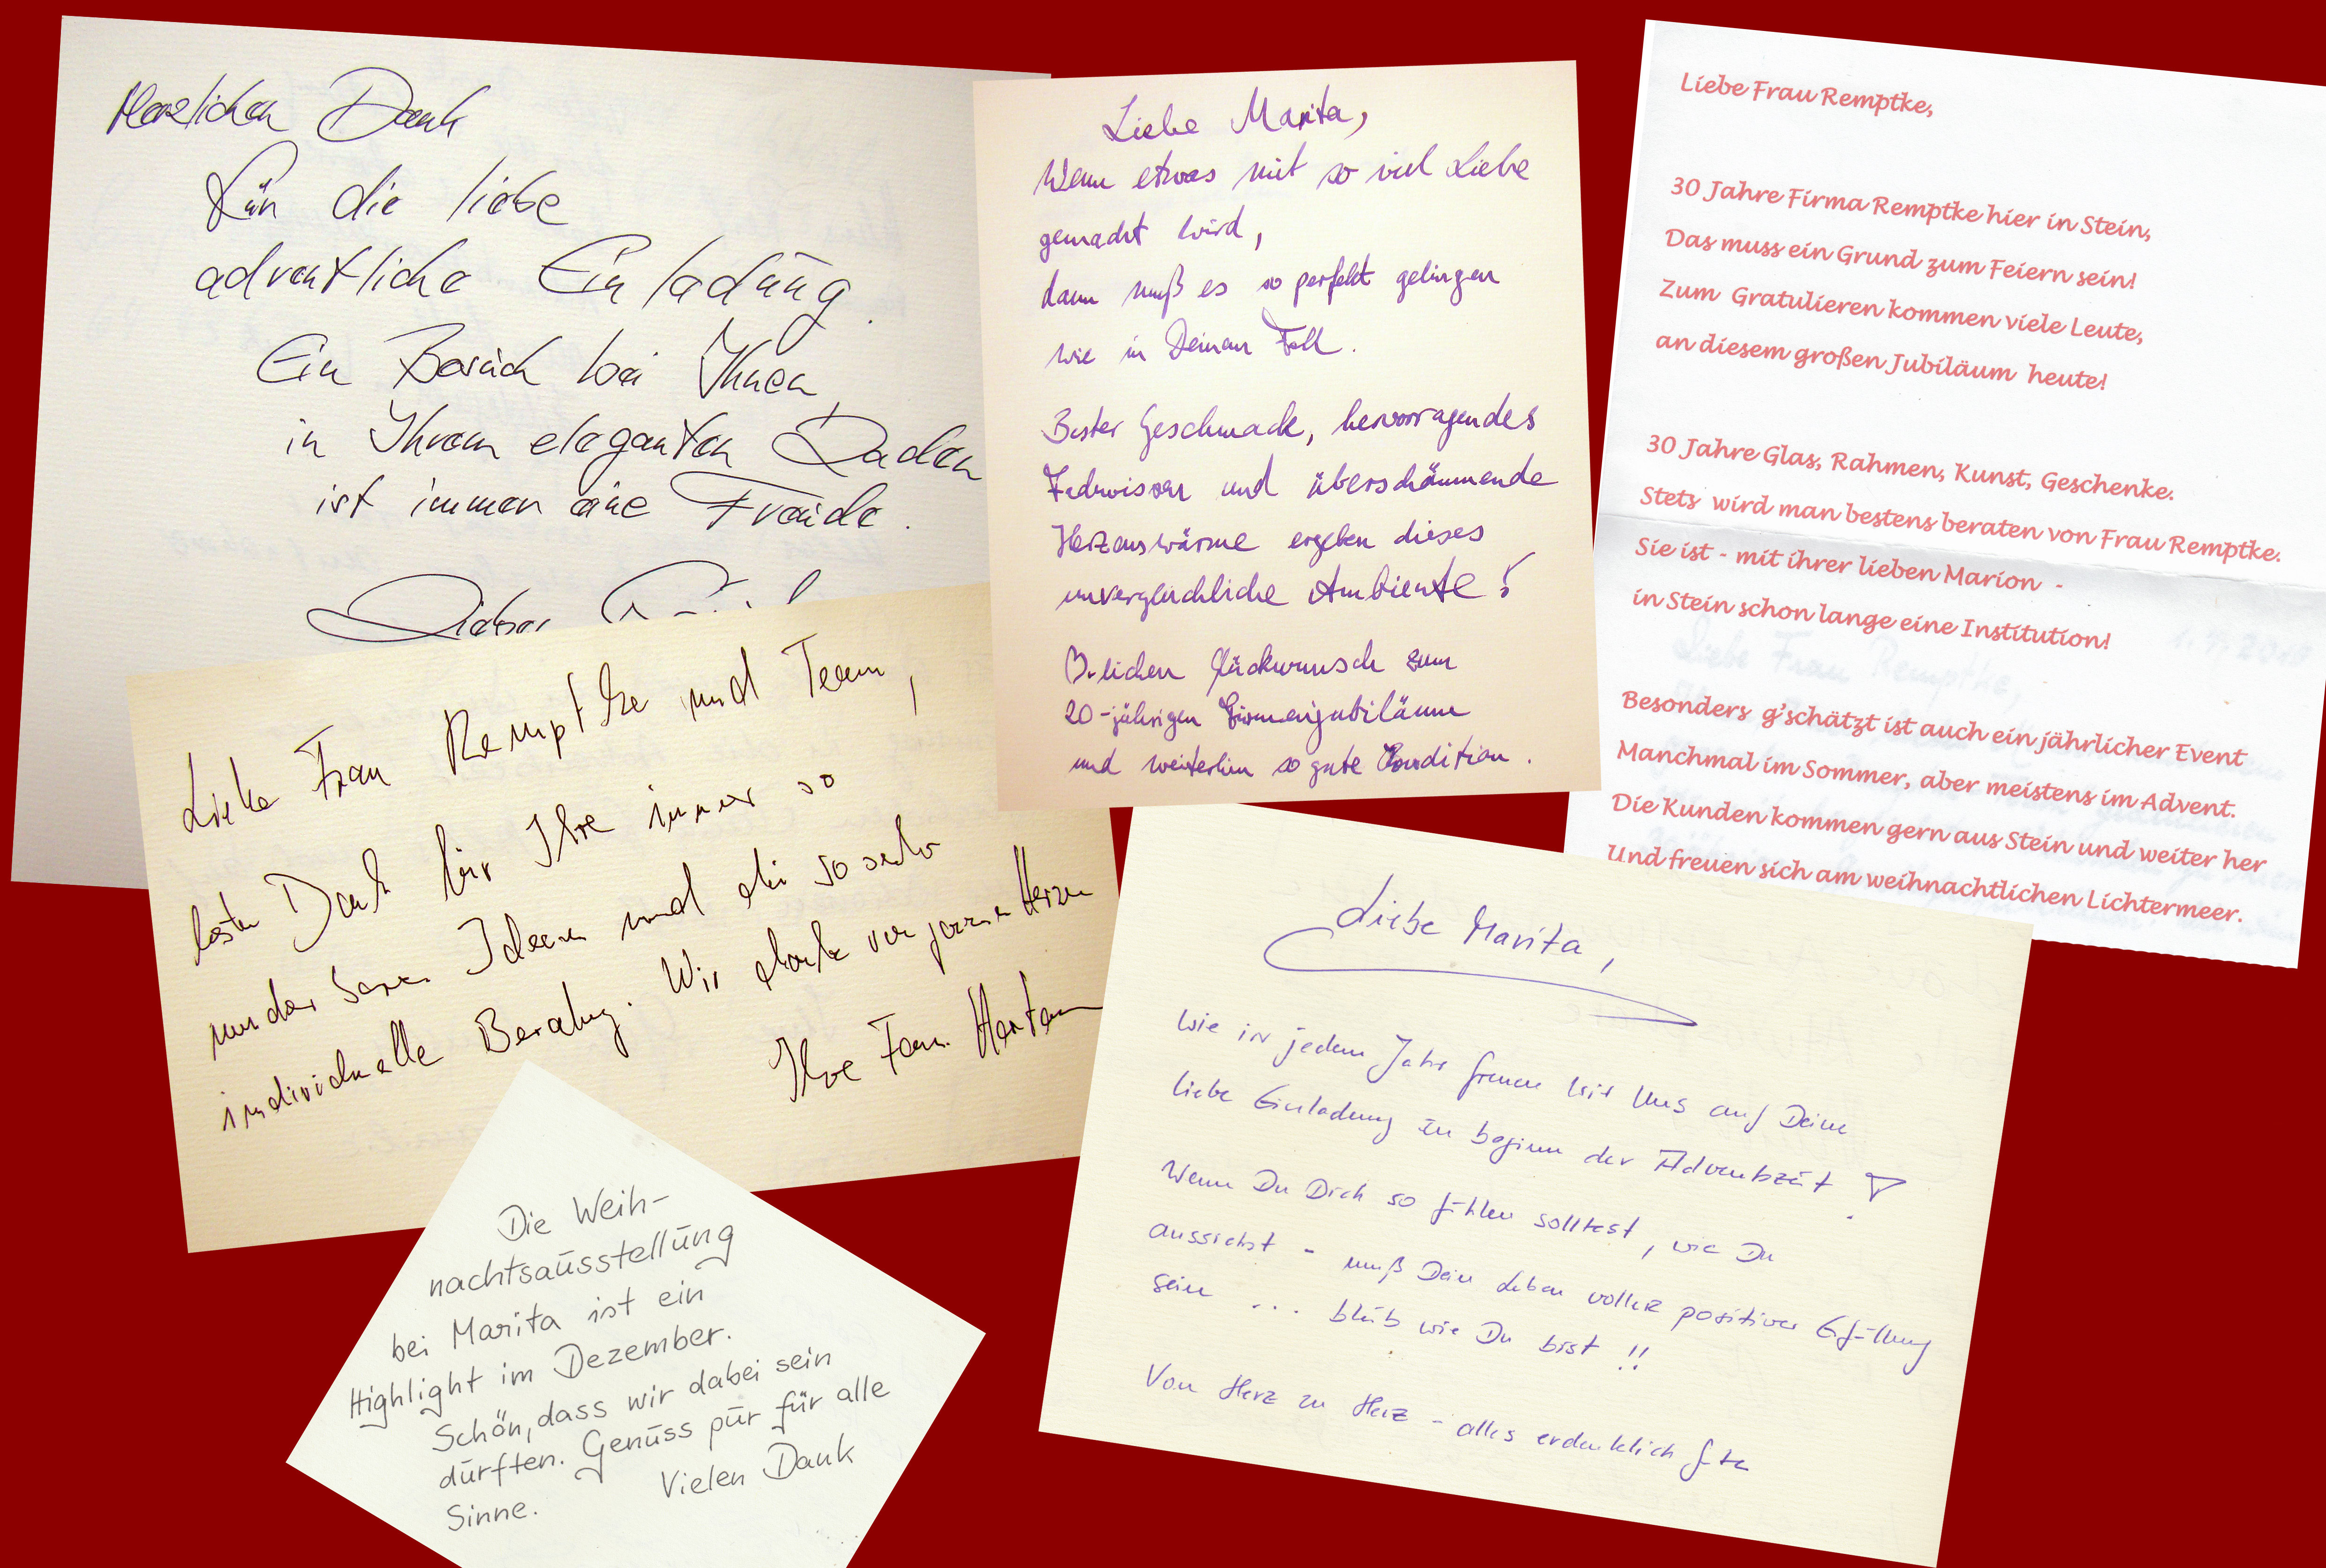 Herzlichen Dank
für die liebe
adventliche Einladung.
Ein Besuch bei Ihnen
in Ihrem eleganten Laden
ist immer eine Freude.
Liebe Marita,
Wenn etwas mit so viel Liebe
gemacht wird,
dann muß es so perfekt gelingen
wie in Deinem Fall.
Bester Geschmack, hervorragendes
und überschäumende
Herzenswärme ergeben dieses
unvergleichliche Ambiente!
Glückwunsch zum
20-jährigen Firmenjubiläum
und weiterhin so gute Kondition.
Liebe Frau Remptke,
30 Jahre Firma Remptke hier in Stein,
Das muss ein Grund zum Feiern sein!
Zum Gratulieren kommen viele Leute,
an diesem großen Jubiläum heute!
30 Jahre Glas, Rahmen, Kunst, Geschenke.
Stets wird man bestens beraten von Frau Remptke.
Sie ist - mit ihrer lieben Marion -
in Stein schon lange eine Institution!
Besonders g'schätzt ist auch ein jährlicher Event
Manchmal im Sommer, aber meistens im Advent.
Die Kunden kommen gern aus Stein und weiter her
Und freuen sich am weihnachtlichen Lichtermeer.
Liebe Frau Remptke und Team,
besten Dank für Ihre immer so
wunderbaren Ideen und die so sehr
individuelle Beratung. Wir danken von ganzem Herzen
Ihre Fam.
Liebe Marita,
wie in jedem Jahr freuen wir uns auf Deine
liebe Einladung zu beginn der Adventszeit!
Wenn Du Dich so fühlen solltest, wie Du
aussiehst - muß Dein Leben voller positiver Erfüllung
sein ... bleib wie Du bist !!
Von Herz zu Herz - alles erdenklich Gute
Die Weih-
nachtsausstellung
bei Marita ist ein
Highlight im Dezember.
Schön, dass wir dabei sein
durften. Genuss pur für alle
Sinne. Vielen Dank